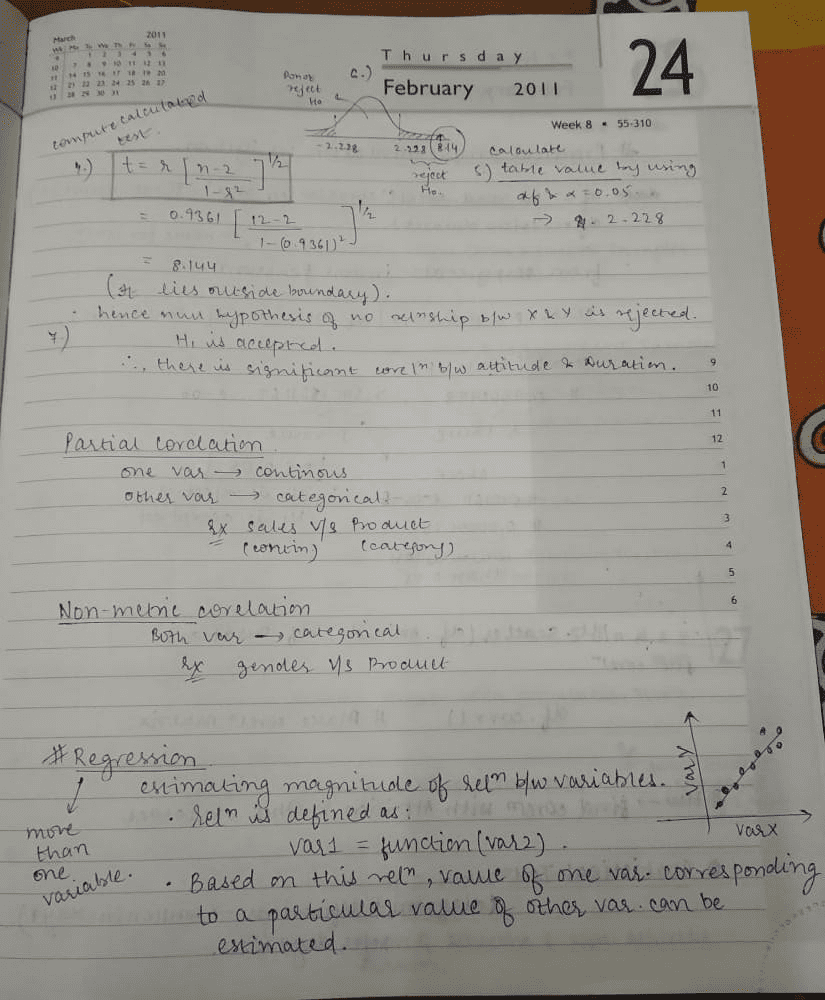 March 2011
Wk Mo Tu We Th Fr Sa Su
9 1 2 3 4 5 6
10 7 8 9 10 11 12 13
11 14 15 16 17 18 19 20
12 21 22 23 24 25 26 27
13 28 29 30 31
Thursday
February 2011
24
Week 8 • 55-310
6.)
Do not
reject
Ho
-2.228 2.228 8.14
reject
Ho.
compute calculated
test.
4.) t = r [n-2 / 1-r²]^1/2
= 0.9361 [12-2 / 1-(0.9361)²]^1/2
= 8.144
calculate
5.) table value by using
df & α = 0.05.
→ 2.228
(It lies outside boundary).
hence null hypothesis of no relnship b/w X & Y is rejected.
7.) H₁ is accepted.
∴, there is significant corelⁿ b/w attitude & Duration.
9
10
11
12
1
2
3
4
5
6
Partial corelation
one var → continous
other var → categorical.
Ex sales v/s Product
(contin) (category)
Non-metric corelation
Both var → categorical
Ex gender v/s Product
# Regression
more
than
one
variable.
estimating magnitude of relⁿ b/w variables.
· Relⁿ is defined as:
var1 = function(var2).
· Based on this relⁿ, value of one var. corresponding
to a particular value of other var. can be
estimated.
var Y
var X